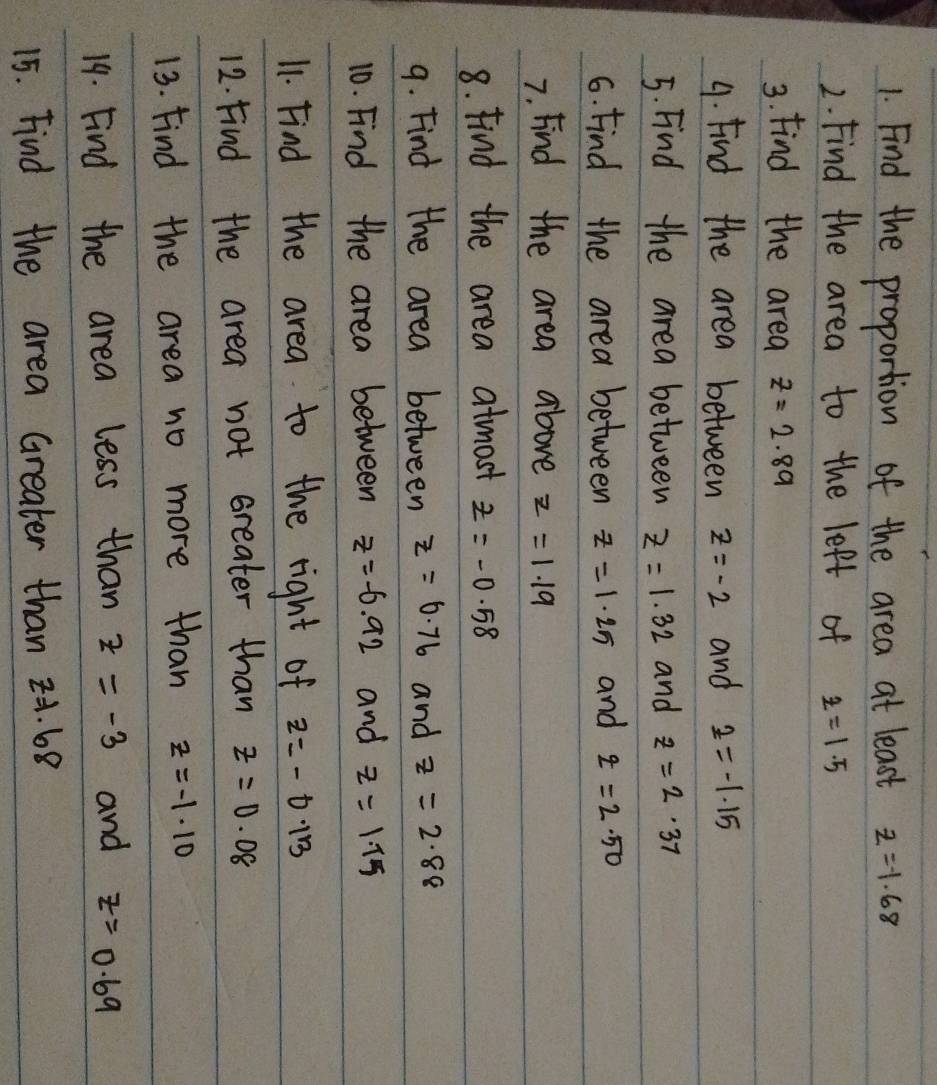 1. Find the proportion of the area at least z=1.68
2. Find the area to the left of z=1.5
3. Find the area z=2.89
4. Find the area between z=-2 and z=-1.15
5. Find the area between z=1.32 and z=2.37
6. Find the area between z=1.25 and z=2.50
7. Find the area above z=1.19
8. Find the area atmost z=-0.58
9. Find the area between z=0.76 and z=2.88
10. Find the area between z=-0.92 and z=1.75
11. Find the area to the right of z=-0.13
12. Find the area not Greater than z=0.08
13. Find the area no more than z=-1.10
14. Find the area less than z=-3 and z=0.69
15. Find the area Greater than